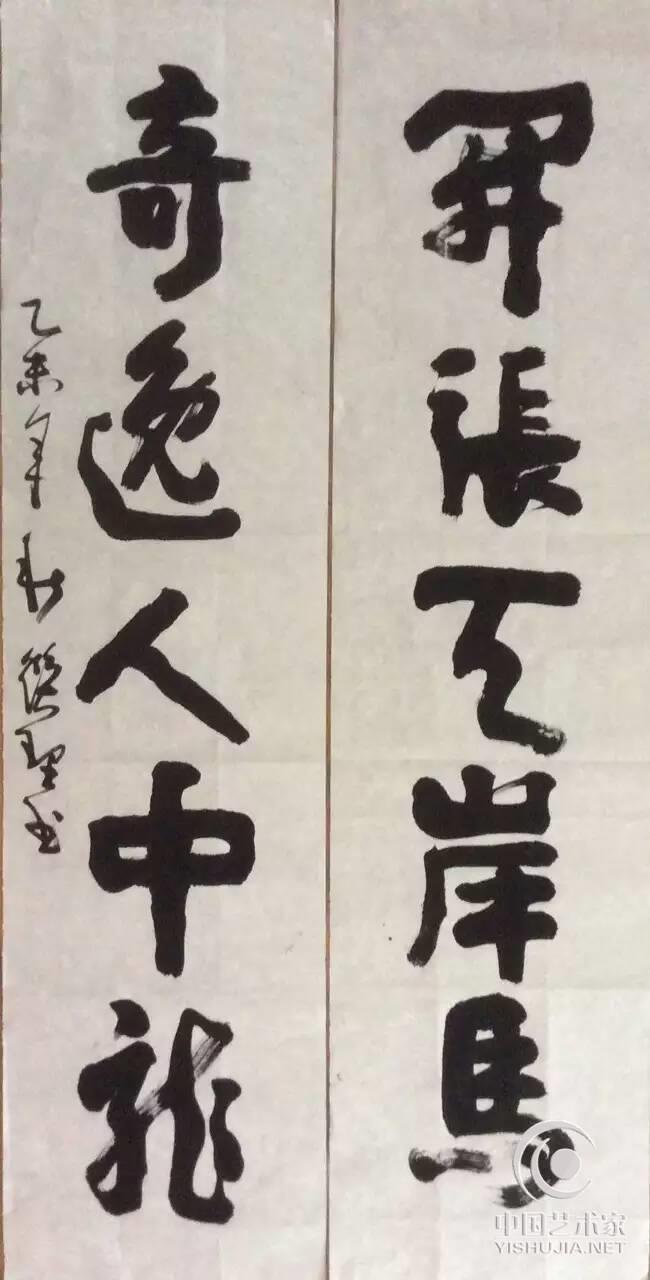 開張天岸馬
奇逸人中龍
乙未年秋 聖书
中国艺术家
YISHUJIA.NET